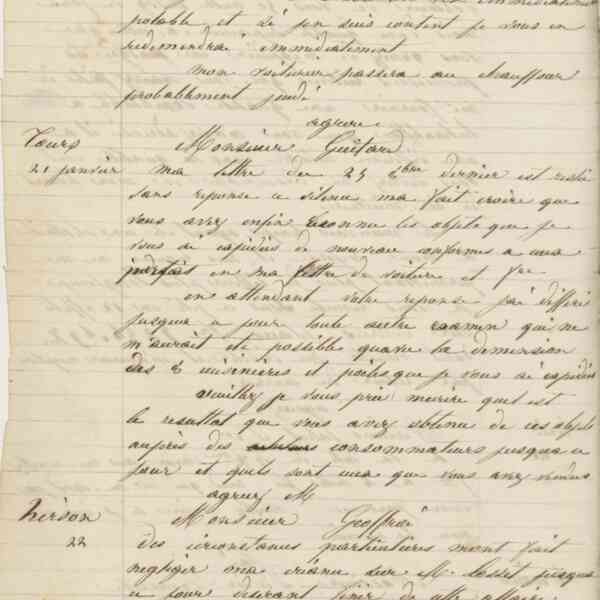 potable et si j'en suis content je vous en
redemanderai immédiatement
mon voiturier passera au chauffour
probablement jeudi
agréer
Tours Monsieur Guitard
21 janvier ma lettre du 25 Xbre dernier est restée
sans reponse ce silence ma fait croire que
vous avez enfin reconnu les objets que je
vous ai expédiés de nouveau conformes a ceux
en ma lettre de voiture et fre
en attendant votre reponse j'ai differé
jusqua ce jour toute autre examen qui ne
m'aurait été possible quavec la dimension
des 2 cuisinières et poeles que je vous ai expédiés
veuillez je vous prie mecrire quel est
le resultat que vous avez obtenu de ces objets
aupres des consommateurs jusqua ce
jour et quels sont ceux que vous avez vendus
agreez M
hirson Monsieur Geoffroi
22 des circonstances particulieres mont fait
negliger ma créance sur M. jusqua
ce jour desirant finir de cette affaire